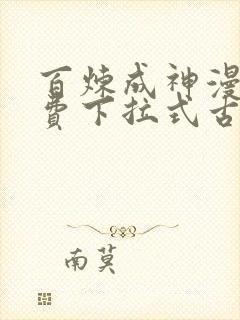 百炼成神漫
费下拉式古
南莫